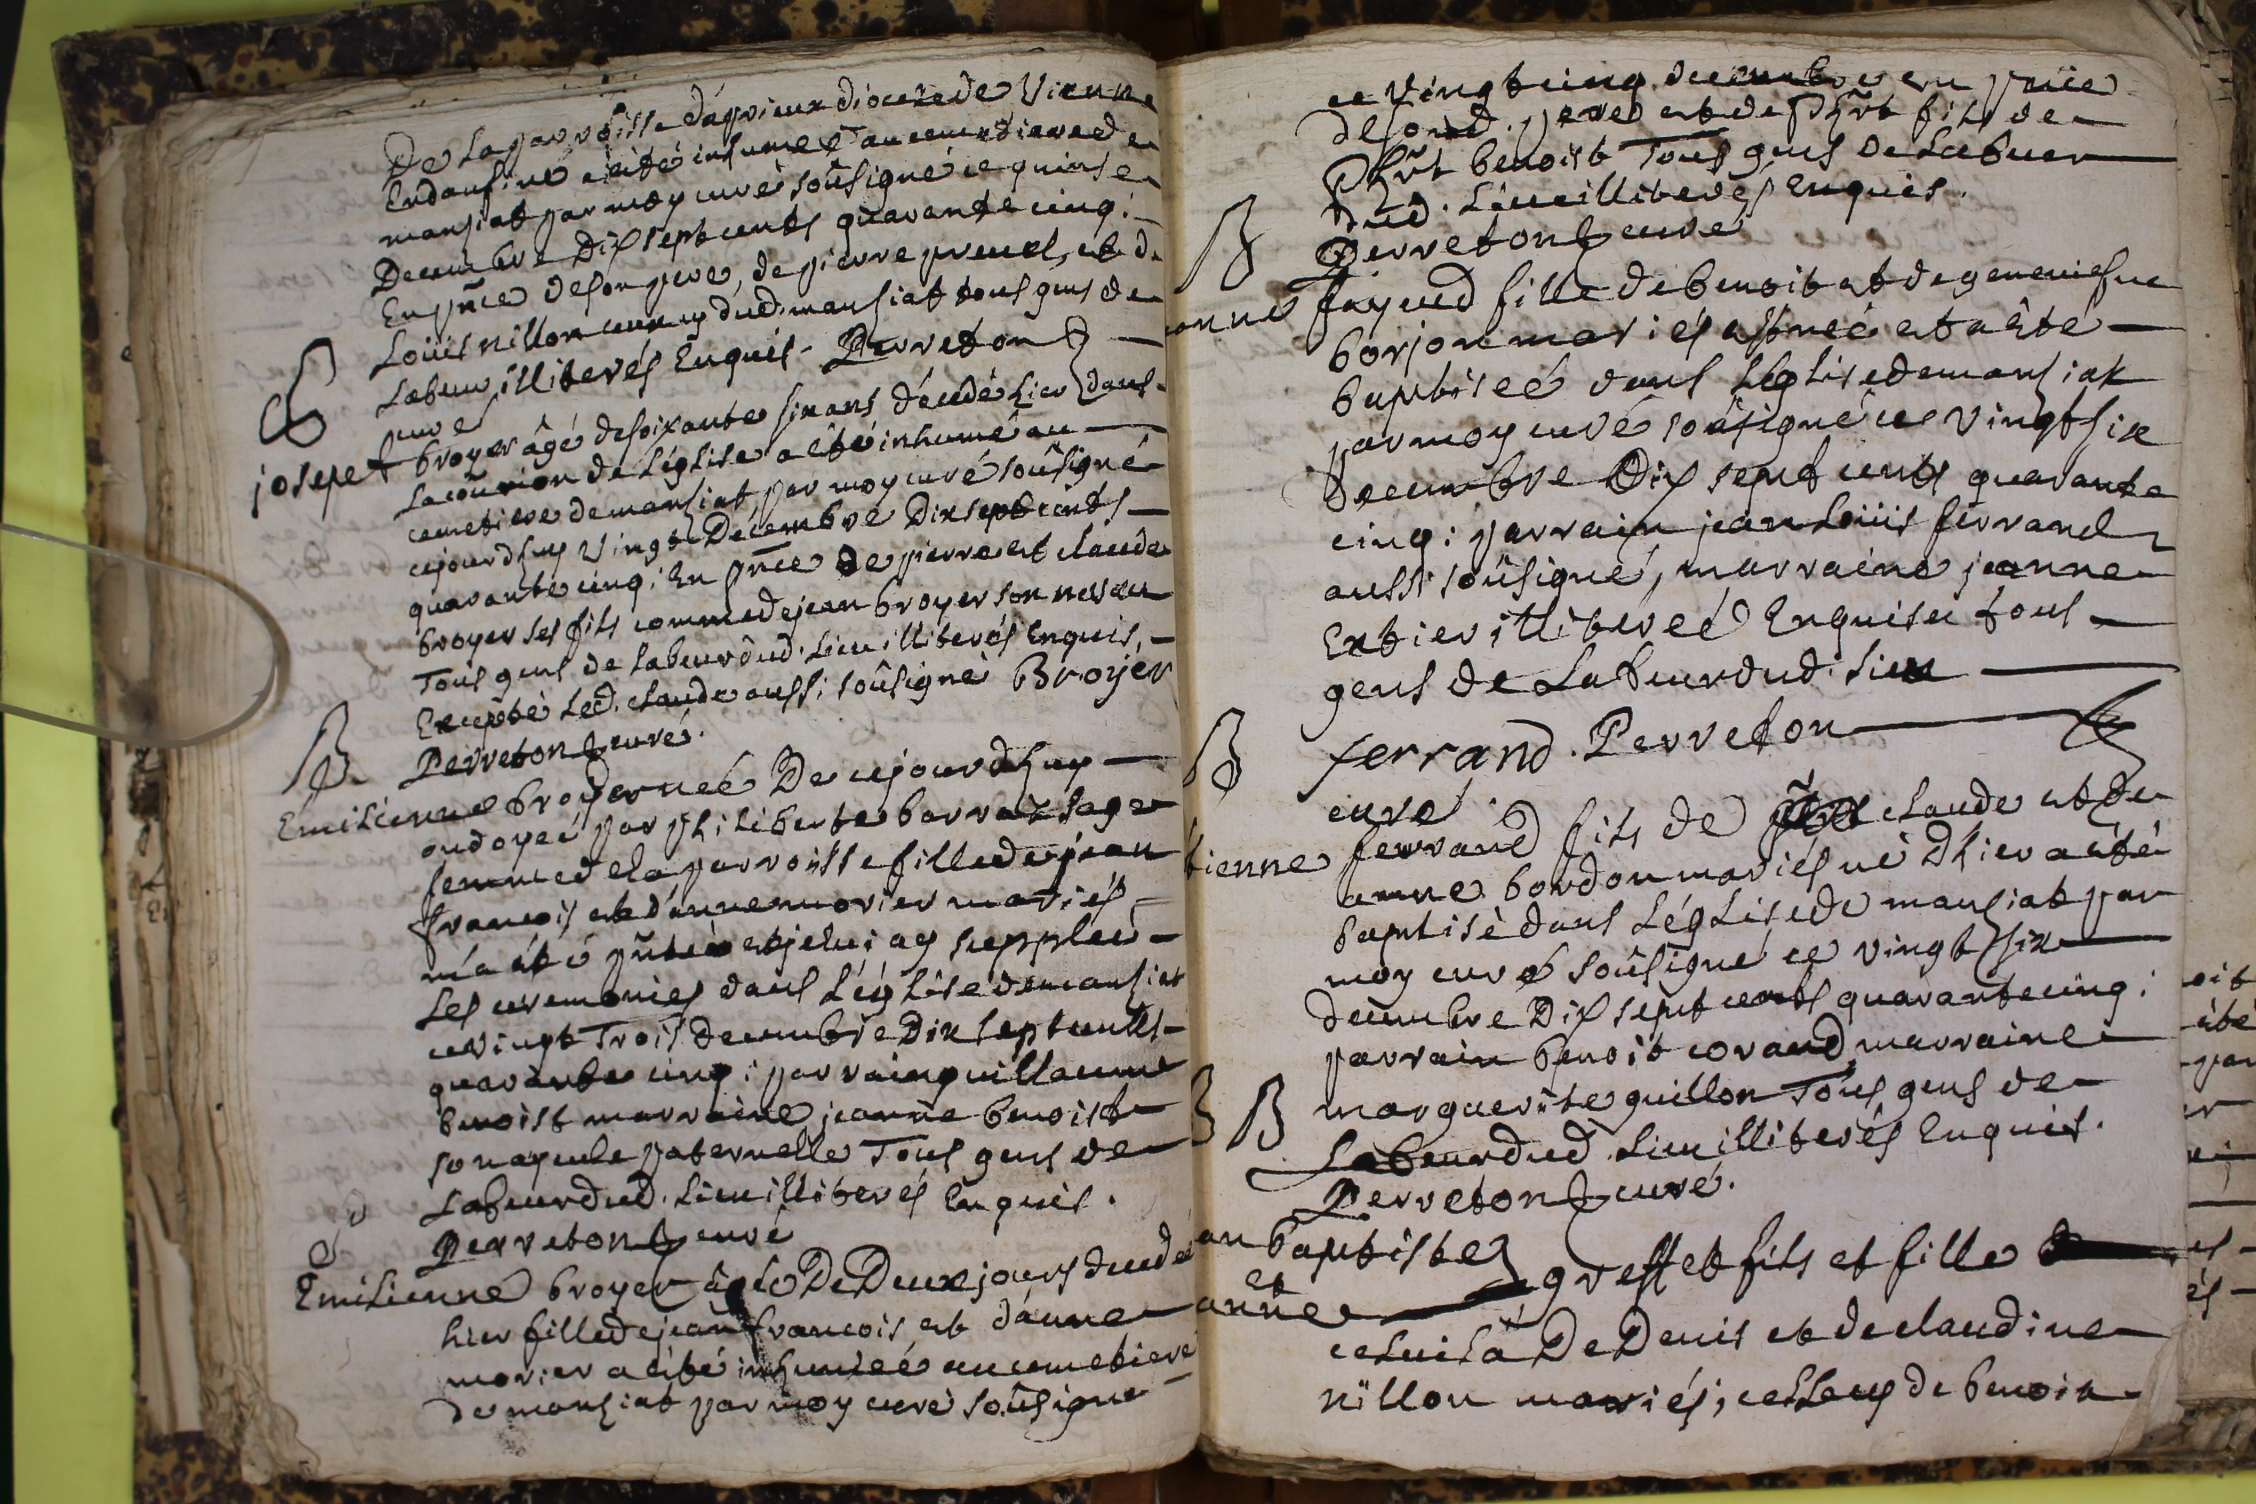 De la parroisse d'agrieux diocese de Vienne
En daufiné a été inhumeé au cemetiere de
manziat par moy curé soûsigné ce quinse
Decembre Dix sept cents quarante cinq:
En pñce de son pere, de pierre pruel, et de
Loüis nillon dud. manziat tous gens de
Labeur illiterés Enquis. Perreton
curé
josepet broyer âgé de soixante six ans décédé hier dans
la coûion de L'église a été inhumé au
cemetiere de manziat par moy curé soûsigné
cejourdhuy Vingt Décembre Dix sept cents
quarante cinq: En pñce De pierre et claude
broyer ses fils comme de jean broyer son neveu
Tous gens de labeur dud. Lieu illiterés Enquis,
Excepté Led. claude aussi soûsigné Broyer
Perreton curé.
B
Emilienne broyer neé De cejourdhuy
ondoyeé par philiberte barrat sage
femme de la parroisse fille de jean
françois et d'anne morier mariés,
m'a été pñteé et je lui ay suppleé
Les ceremonies dans L'églîse de manziat
ce vingt Trois decembre Dix sept cents
quarante cinq: parrain guillaume
benoist marraine jeanne benoist
son ayeule paternelle Tous gens de
Labeur dud. Lieu illiterés Enquis.
Perreton curé
Emilienne broyer âgeé De Deux jours decedeé
hier fille de jean francois et d'anne
morier a été inhumeé au cemetiere
de manziat par moy curé soûsigné
ce Vingt cinq decembre en pñce
de son d. pere et de phrt fils de
phrt benoist Tous gens de Labeur
dud. Lieu illiterés Enquis.
Perreton curé
B
anne fayed fille de benoit et de genevieſve
borjon mariés est neé et a été
baptiseé dans L'églis de manziat
par moy curé soûsigné ce Vingt six
Decembre Dix sept cents quarante
cinq: parrain jean Loüis ferrand
aussi soûsigné, marraine jeanne
Extier illitereé Enquise tous
gens de Labeur dud. Lieu
ferrand. Perreton
curé
B
tienne ferrand fils de claude et de
anne bordon mariés né D'hier a été
baptisé dans L'églis de manziat par
moy curé soûsigné ce vingt six
decembre Dix sept cents quarante cinq:
parrain benoit corand marraine
marguerite guillon Tous gens de
Labeur dud. Lieu illiterés Enquis.
Perreton curé.
B B
an baptiste
et
anne
greffet fils et fille
celui là De Denis et de claudine
nillon mariés; celle cy de benoit